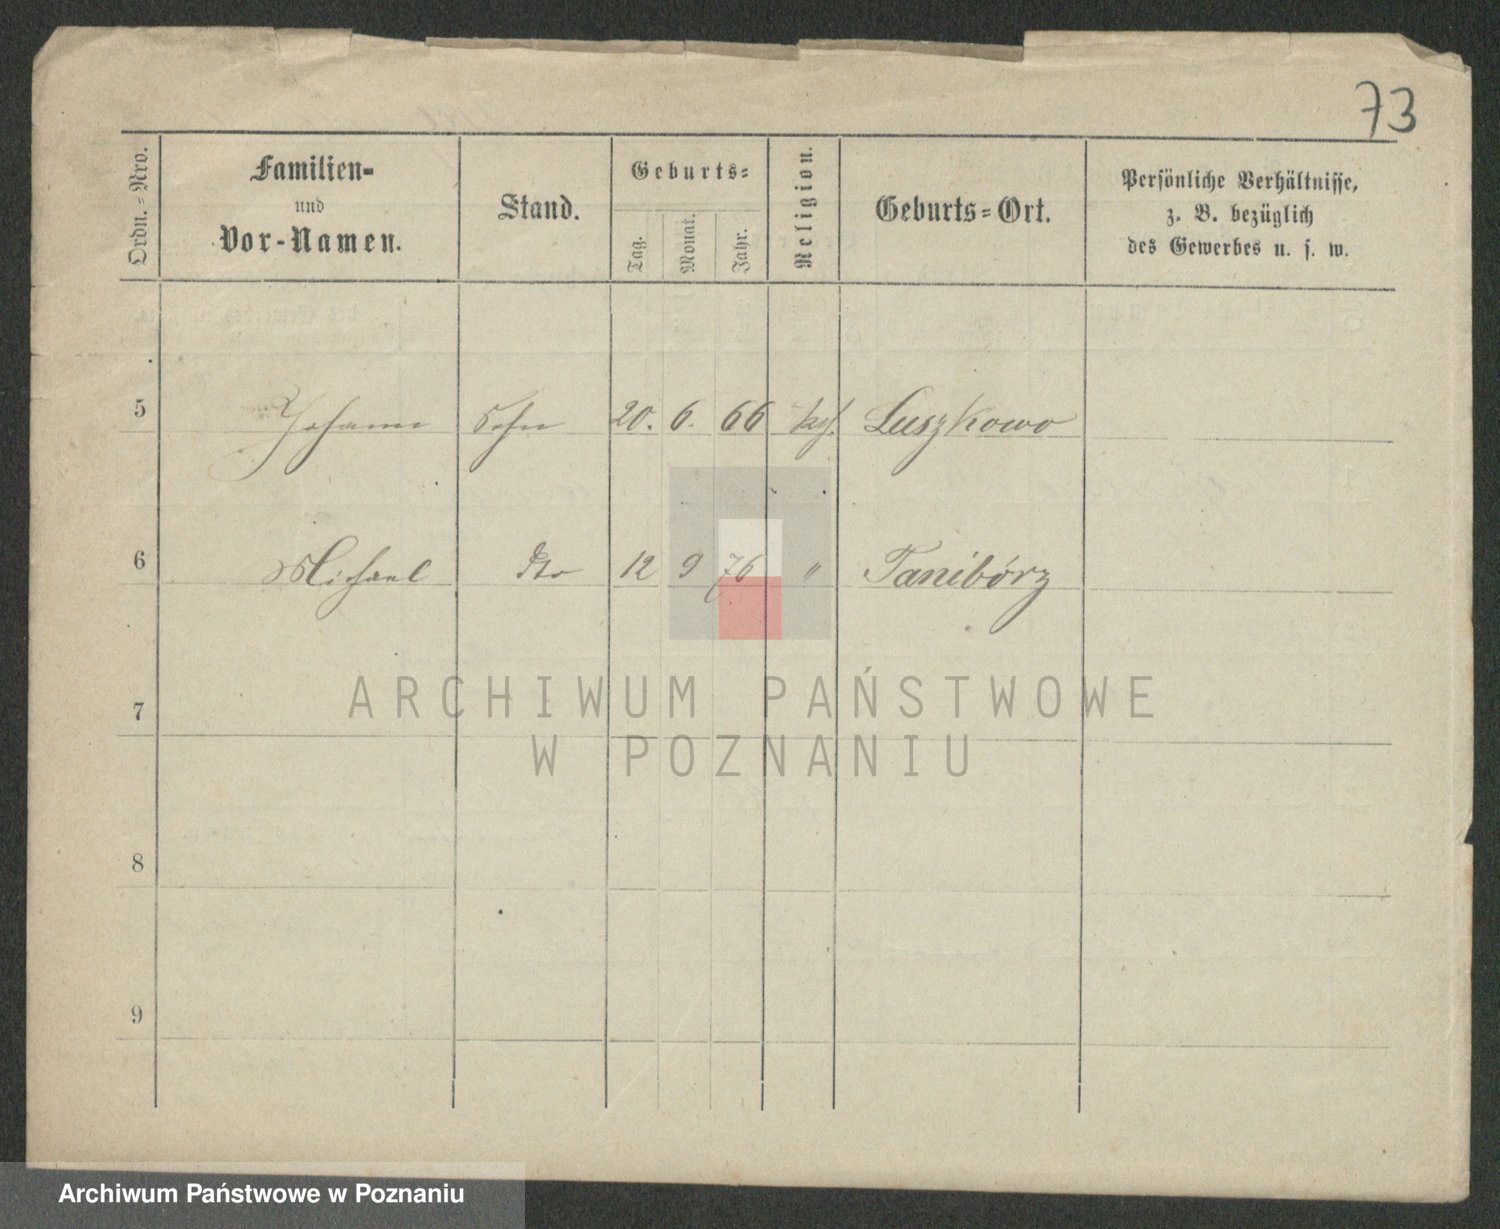 73
Ordn.-Nro.
Familien-
und
Vor-Namen.
Stand.
Geburts-
Tag.
Monat.
Jahr.
Religion.
Geburts-Ort.
Persönliche Verhältnisse,
z. B. bezüglich
des Gewerbes u. s. w.
5 Johann Sohn 20. 6. 66 kgl. Luszkowo
6 Michael dto 12 9 76 " Tanibórz
7
8
9
ARCHIWUM PAŃSTWOWE
W POZNANIU
Archiwum Państwowe w Poznaniu